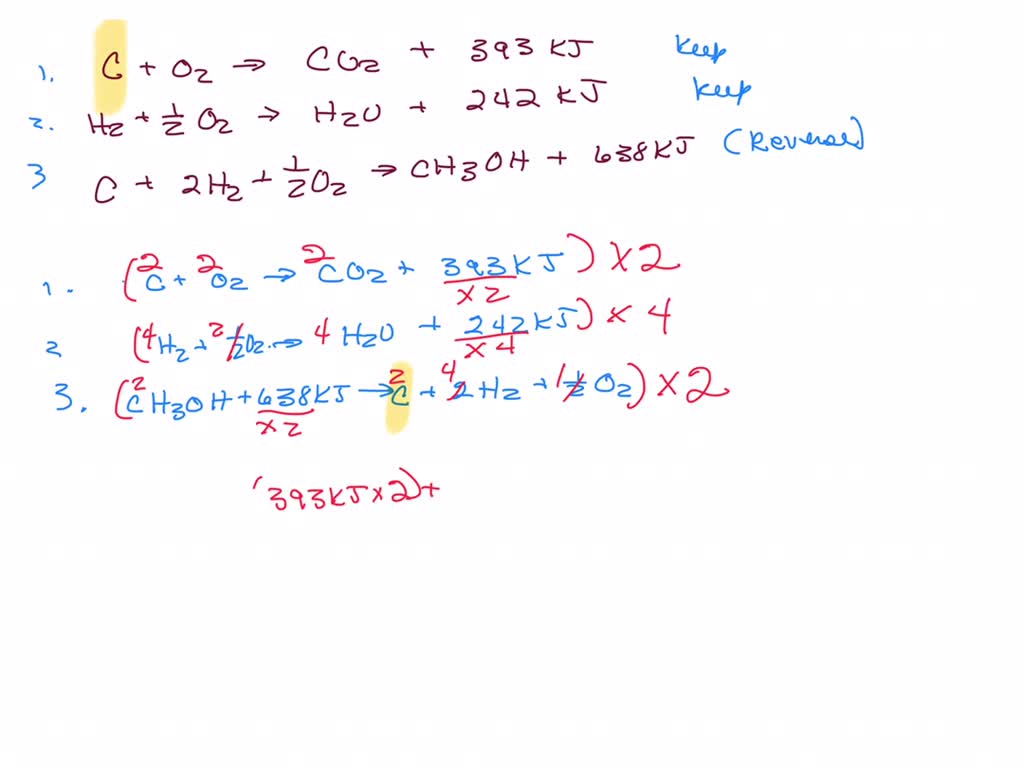 1. C + O2 → CO2 + 393 KJ Keep
2. H2 + 1/2 O2 → H2O + 242 KJ Keep
3 C + 2H2 + 1/2 O2 → CH3OH + 638KJ (Reverse)
1. (2C + 2O2 → 2CO2 + 393KJ x2) x2
2 (4H2 + 2 1/2O2 → 4 H2O + 242KJ x4) x 4
3. (2CH3OH + 638KJ x2 → 2C + 4 2H2 + 1 1/2 O2) x2
(393KJ x 2) +